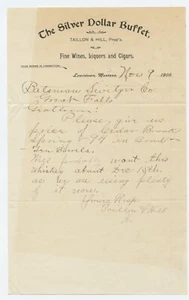 The Silver Dollar Buffet,
TAILLON & HILL, Prop's.
Fine Wines, Liquors and Cigars.
Lewistown, Montana, Nov 9 1900
Bateman Switzler Co
Great Falls
Gentlemen;
Please give us
price of Cedar Brook
Spring 99 in bond
Ten barrels
Will probably want this
whiskey about Dec 15th
as by us using plenty
of it now.
Yours Resp
Taillon & Hill